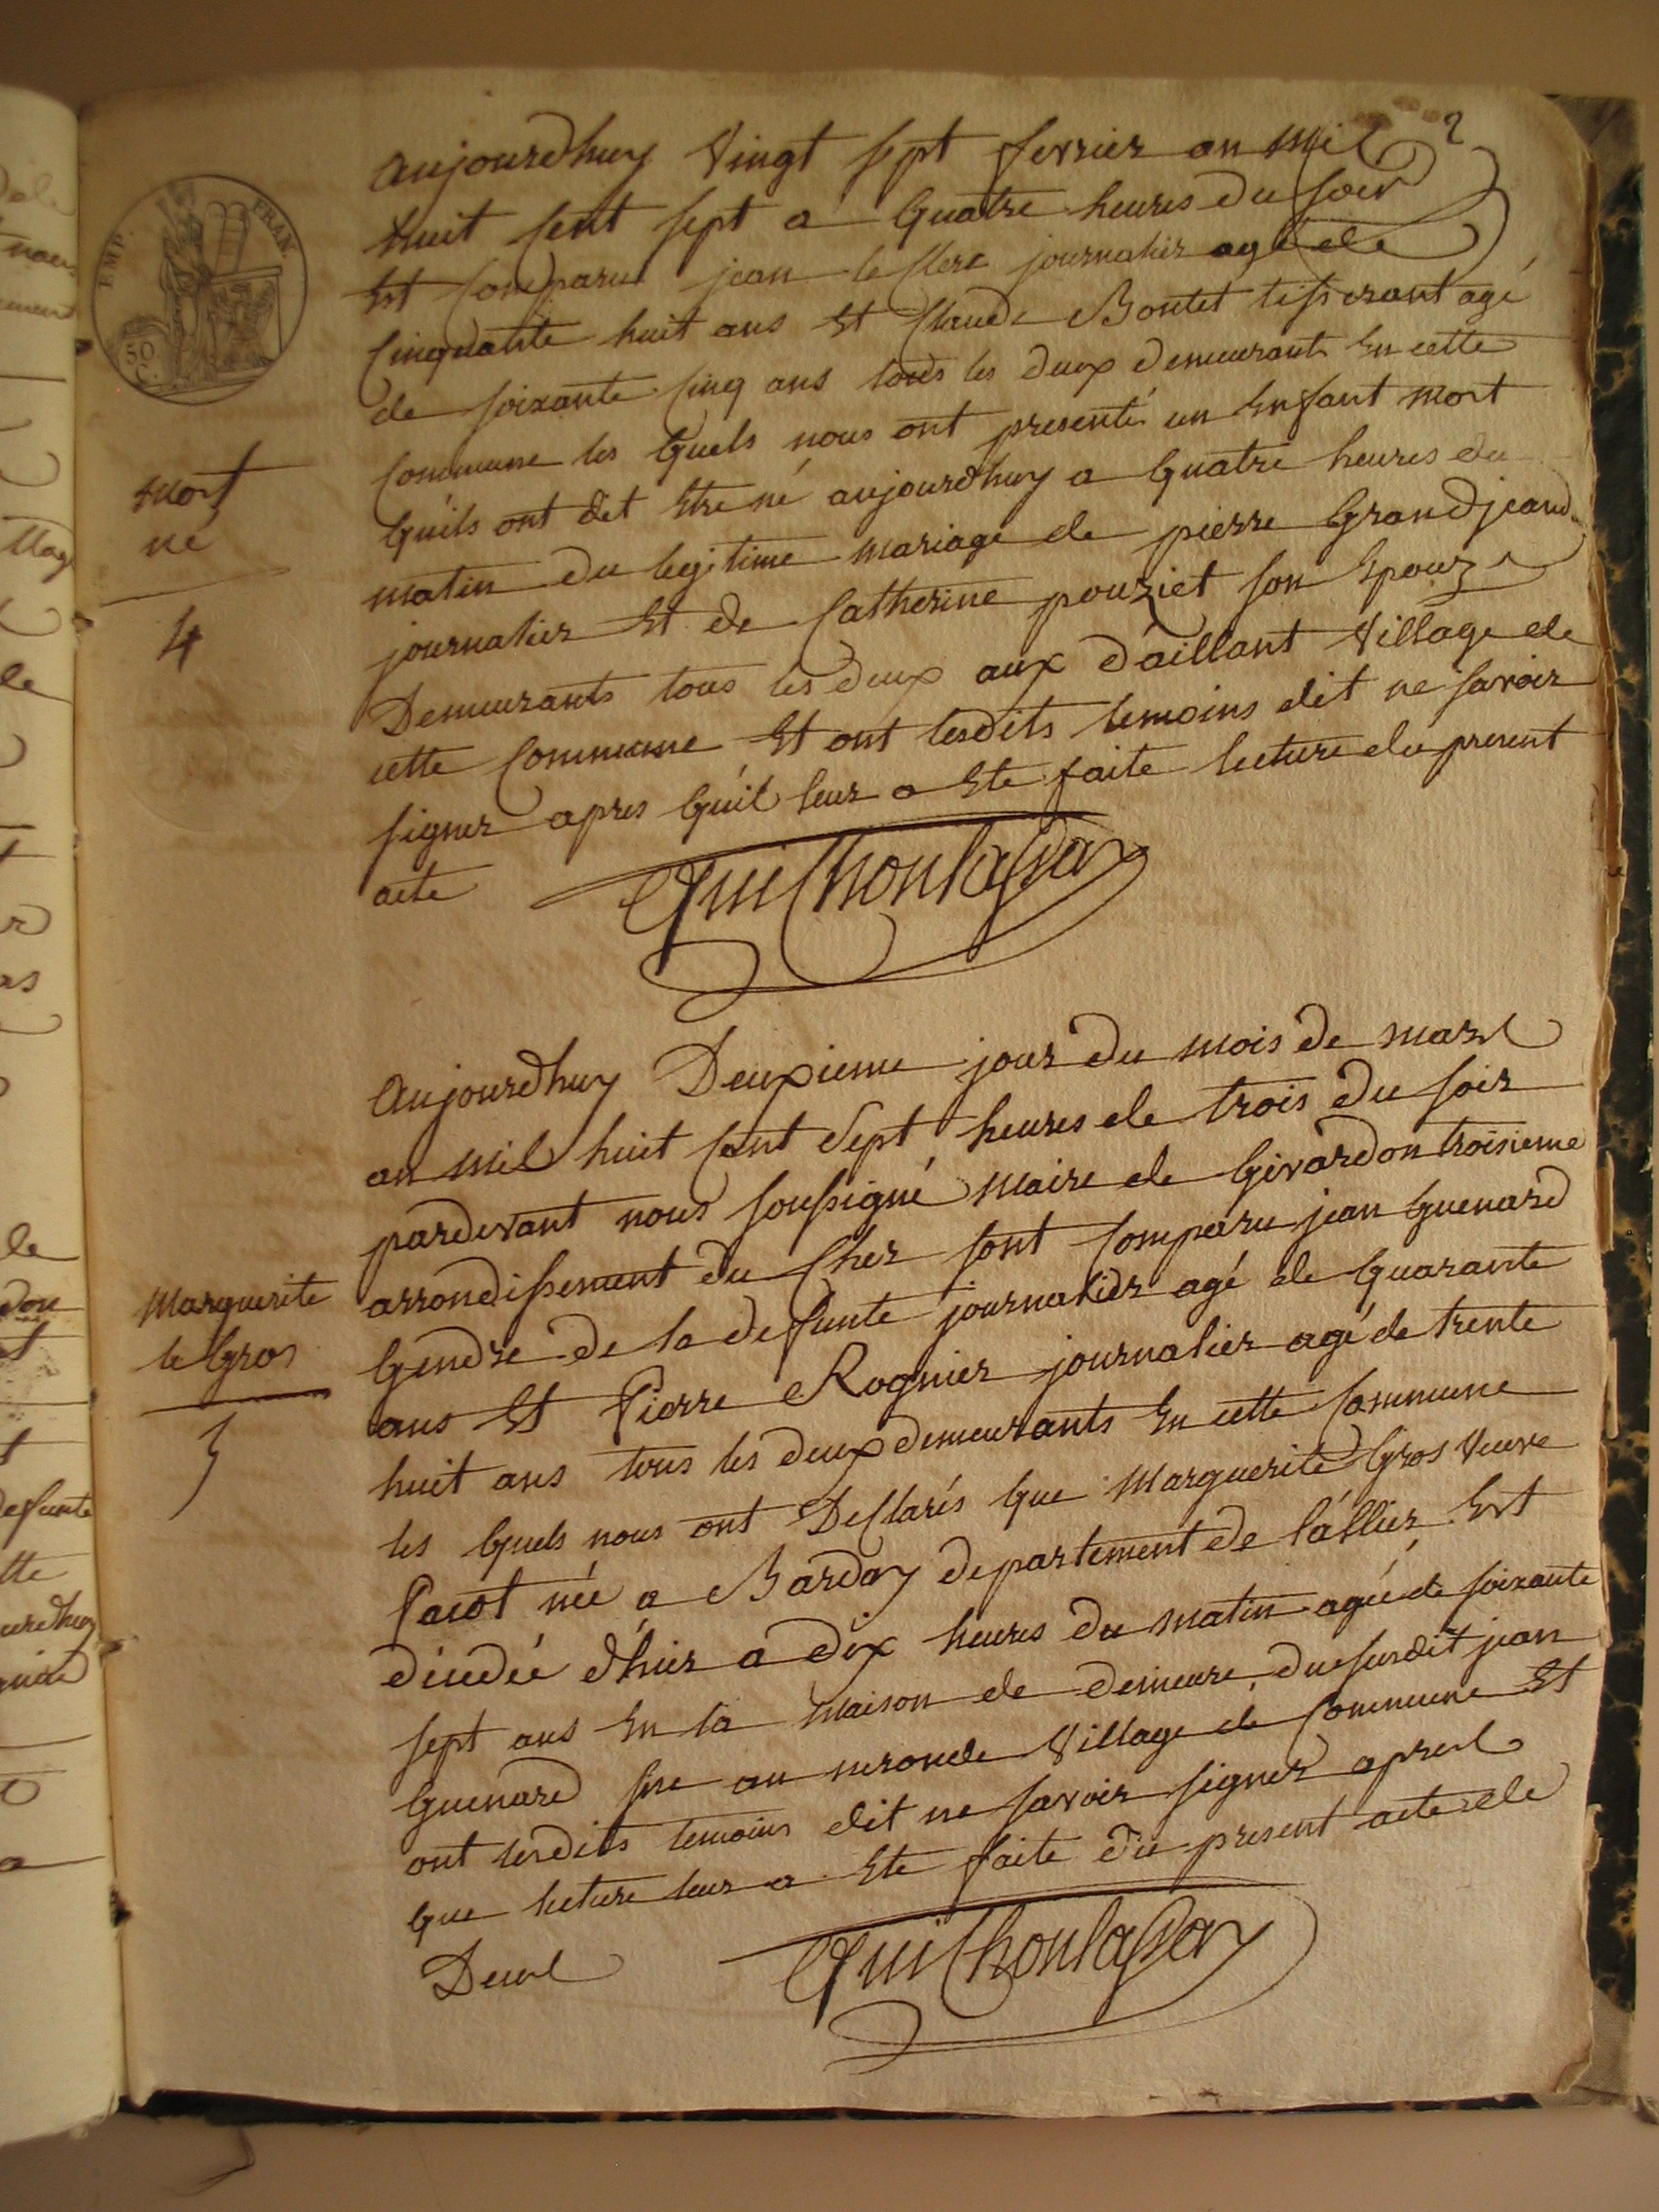 2
aujourdhuy vingt sept fevrier an mil
huit cent sept a quatre heures du soir
EMP. FRAN.
est comparu jean le clerc journalier agé de
cinquante huit ans et Claude Bontet tisserant agé
50 C.
de soixante cinq ans tous les deux demeurants en cette
commune les quels nous ont presenté un enfant mort
mort
né
4
quils ont dit etre né aujourdhuy a quatre heures du
matin du legitime mariage de pierre Grandjean
journalier et de Catherine pouziet son epouze
Demeurants tous les deux aux daillant village de
cette commune et ont lesdits temoins dit ne savoir
signer apres quil leur a ete faite lecture du present
acte
Aujourdhuy Deuxieme jour du mois de mars
an mil huit cent sept heures de trois du soir
pardevant nous soussigné maire de Givardon troisieme
arrondissement du Cher sont comparu jean Guenard
Marguerite
le Gros
gendre de la defunte journalier agé de quarante
ans et Pierre Rognier journalier agé de trente
huit ans tous les deux demeurants en cette commune
les quels nous ont Declarés que Marguerite Gros veuve
née a Barday departement de l'allier est
décedée d'hier a dix heures du matin agée de soixante
sept ans en la maison de demeure du susdit jean
Guenard sise au village de commune et
ont lesdits temoins dit ne savoir signer apres
que lecture leur a ete faite du present acte de
Deces